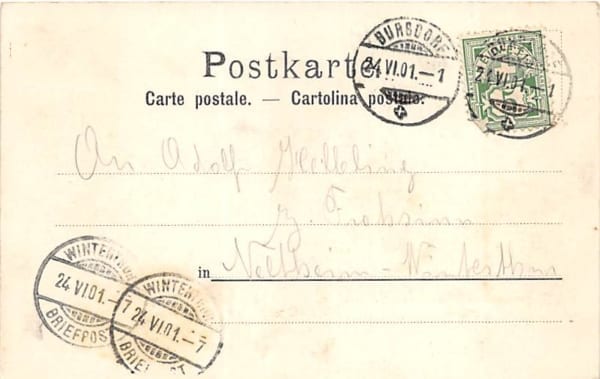 BURGDORF
24.VI.01.–1
BURGDORF
24.VI.01.–1
Postkarte.
Carte postale. — Cartolina postale.
An Adolf Helbling
z. Frohsinn
in Veltheim-Winterthur
WINTERTHUR
24.VI.01.–7
BRIEFPOST
WINTERTHUR
24.VI.01.–7
BRIEFPOST